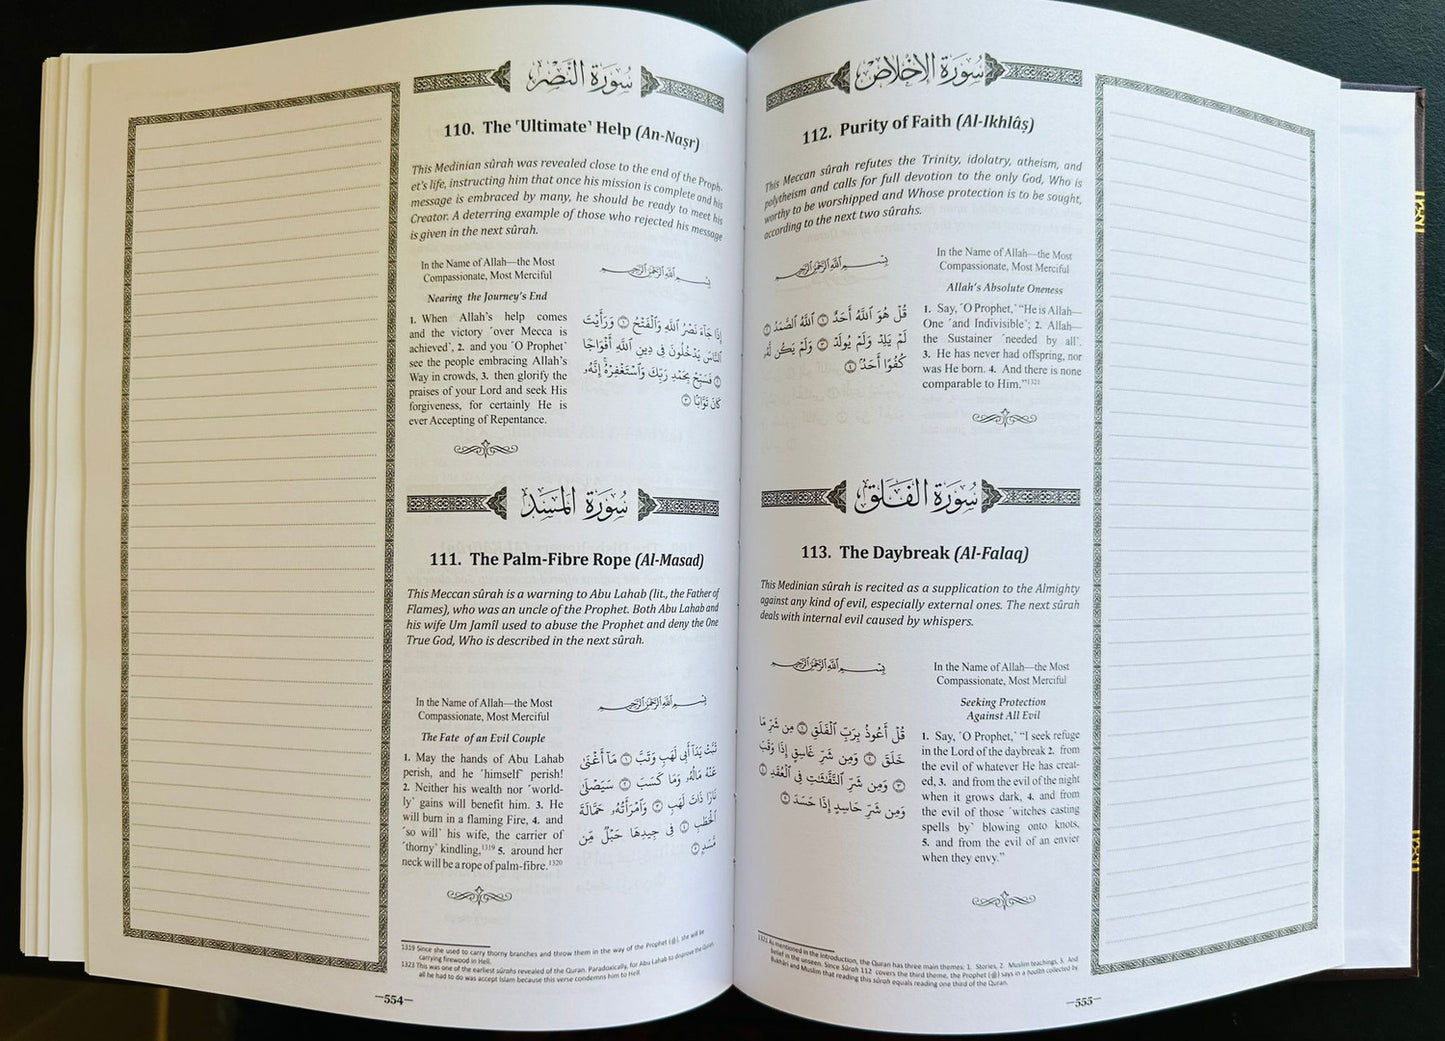 سُورَةُ النَّصْرِ
110. The ˹Ultimate˺ Help (An-Naṣr)
This Medinian sûrah was revealed close to the end of the Proph-
et's life, instructing him that once his mission is complete and his
message is embraced by many, he should be ready to meet his
Creator. A deterring example of those who rejected his message
is given in the next sûrah.
In the Name of Allah—the Most
Compassionate, Most Merciful
Nearing the Journey's End
1. When Allah's help comes
and the victory ˹over Mecca is
achieved˺, 2. and you ˹O Prophet˺
see the people embracing Allah's
Way in crowds, 3. then glorify the
praises of your Lord and seek His
forgiveness, for certainly He is
ever Accepting of Repentance.
بِسْمِ اللَّهِ الرَّحْمَٰنِ الرَّحِيمِ
إِذَا جَاءَ نَصْرُ اللَّهِ وَالْفَتْحُ ١ وَرَأَيْتَ
النَّاسَ يَدْخُلُونَ فِي دِينِ اللَّهِ أَفْوَاجًا
٢ فَسَبِّحْ بِحَمْدِ رَبِّكَ وَاسْتَغْفِرْهُ إِنَّهُ
كَانَ تَوَّابًا ٣
سُورَةُ المَسَدِ
111. The Palm-Fibre Rope (Al-Masad)
This Meccan sûrah is a warning to Abu Lahab (lit., the Father of
Flames), who was an uncle of the Prophet. Both Abu Lahab and
his wife Um Jamîl used to abuse the Prophet and deny the One
True God, Who is described in the next sûrah.
In the Name of Allah—the Most
Compassionate, Most Merciful
The Fate of an Evil Couple
1. May the hands of Abu Lahab
perish, and he ˹himself˺ perish!
2. Neither his wealth nor ˹world-
ly˺ gains will benefit him. 3. He
will burn in a flaming Fire, 4. and
˹so will˺ his wife, the carrier of
˹thorny˺ kindling,1319 5. around her
neck will be a rope of palm-fibre.1320
بِسْمِ اللَّهِ الرَّحْمَٰنِ الرَّحِيمِ
تَبَّتْ يَدَا أَبِي لَهَبٍ وَتَبَّ ١ مَا أَغْنَىٰ
عَنْهُ مَالُهُ وَمَا كَسَبَ ٢ سَيَصْلَىٰ
نَارًا ذَاتَ لَهَبٍ ٣ وَامْرَأَتُهُ حَمَّالَةَ
الْحَطَبِ ٤ فِي جِيدِهَا حَبْلٌ مِّن
مَّسَدٍ ٥
1319 Since she used to carry thorny branches and throw them in the way of the Prophet (ﷺ), she will be
carrying firewood in Hell.
1323 This was one of the earliest sûrahs revealed of the Quran. Paradoxically, for Abu Lahab to disprove the Quran,
all he had to do was accept Islam because this verse condemns him to Hell.
—554—
سُورَةُ الإِخْلَاصِ
112. Purity of Faith (Al-Ikhlâṣ)
This Meccan sûrah refutes the Trinity, idolatry, atheism, and
polytheism and calls for full devotion to the only God, Who is
worthy to be worshipped and Whose protection is to be sought,
according to the next two sûrahs.
بِسْمِ اللَّهِ الرَّحْمَٰنِ الرَّحِيمِ
قُلْ هُوَ اللَّهُ أَحَدٌ ١ اللَّهُ الصَّمَدُ ٢
لَمْ يَلِدْ وَلَمْ يُولَدْ ٣ وَلَمْ يَكُن لَّهُ
كُفُوًا أَحَدٌ ٤
In the Name of Allah—the Most
Compassionate, Most Merciful
Allah's Absolute Oneness
1. Say, ˹O Prophet,˺ “He is Allah—
One ˹and Indivisible˺; 2. Allah—
the Sustainer ˹needed by all˺.
3. He has never had offspring, nor
was He born. 4. And there is none
comparable to Him.”1321
سُورَةُ الفَلَقِ
113. The Daybreak (Al-Falaq)
This Medinian sûrah is recited as a supplication to the Almighty
against any kind of evil, especially external ones. The next sûrah
deals with internal evil caused by whispers.
بِسْمِ اللَّهِ الرَّحْمَٰنِ الرَّحِيمِ
قُلْ أَعُوذُ بِرَبِّ الْفَلَقِ ١ مِن شَرِّ مَا
خَلَقَ ٢ وَمِن شَرِّ غَاسِقٍ إِذَا وَقَبَ
٣ وَمِن شَرِّ النَّفَّاثَاتِ فِي الْعُقَدِ ٤
وَمِن شَرِّ حَاسِدٍ إِذَا حَسَدَ ٥
In the Name of Allah—the Most
Compassionate, Most Merciful
Seeking Protection
Against All Evil
1. Say, ˹O Prophet,˺ “I seek refuge
in the Lord of the daybreak 2. from
the evil of whatever He has creat-
ed, 3. and from the evil of the night
when it grows dark, 4. and from
the evil of those ˹witches casting
spells by˺ blowing onto knots,
5. and from the evil of an envier
when they envy.”
1321 As mentioned in the Introduction, the Quran has three main themes: 1. Stories, 2. Muslim teachings, 3. And
belief in the unseen. Since Sûrah 112 covers the third theme, the Prophet (ﷺ) says in a ḥadîth collected by
Bukhâri and Muslim that reading this sûrah equals reading one third of the Quran.
—555—